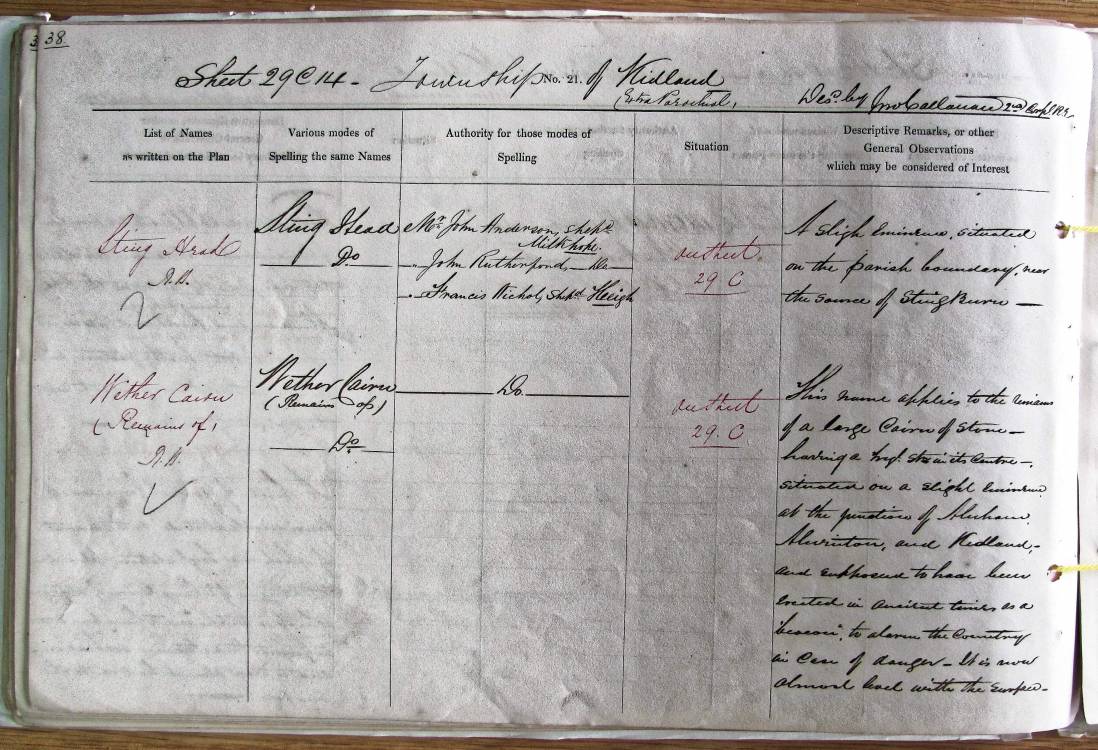 38.
Sheet 29 C 14 - Township No. 21. of Kidland
(Extra Parochial)
Des. by Jno Callanan 2nd Corpl R.E.
List of Names
as written on the Plan
Various modes of
Spelling the same Names
Authority for those modes of
Spelling
Situation
Descriptive Remarks, or other
General Observations
which may be considered of Interest
Sting Head
Sting Head
Do
Mr. John Anderson, shepd
Milkhope
" John Rutherford, Do
" Francis Nichol, Shepd Heigh
on sheet
29 C
A sligh eminence, situated
on the parish boundary, near
the source of Sting Burn -
Wether Cairn
(Remains of)
Wether Cairn
(Remains of)
Do
Do
on sheet
29. C
This name applies to the remains
of a large Cairn of Stone -
having a Trigl. Stn in its Centre -
situated on a slight eminence
at the junction of Alnham
Alwinton, and Kidland, -
and supposed to have been
erected in ancient times as a
"beacon", to alarm the Country
in Case of danger - It is now
almost level with the surface -